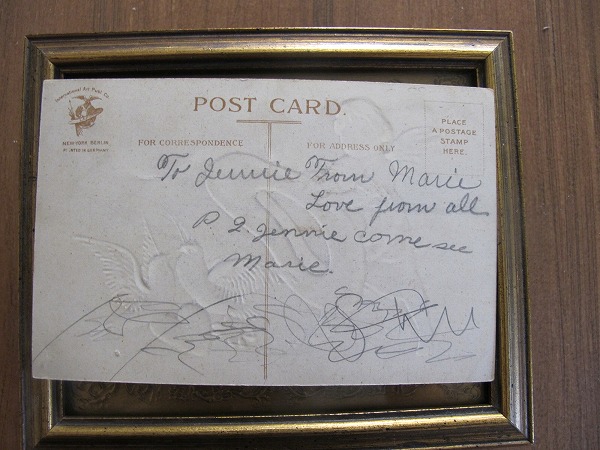 International Art Publ. Co.
NEW YORK BERLIN
PRINTED IN GERMANY
POST CARD.
FOR CORRESPONDENCE
FOR ADDRESS ONLY
PLACE
A POSTAGE
STAMP
HERE.
To Jennie From Marie
Love from all
P. Q. Jennie come see
Marie.